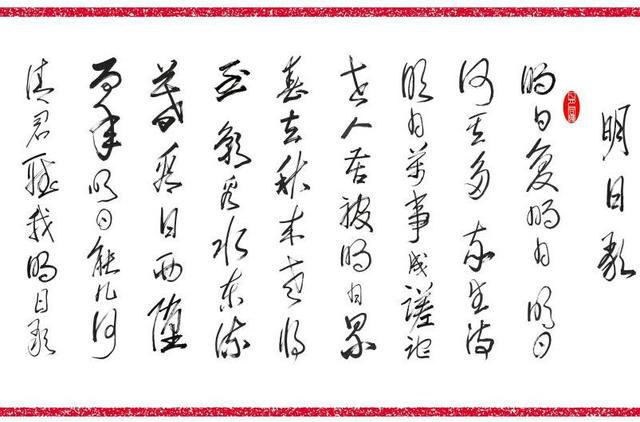 明日歌
明日复明日明日
何其多我生待
明日萬事成蹉跎
世人苦被明日累
春去秋来老将
至朝看水东流
暮看日西坠
百年明日能几何
请君聽我明日歌